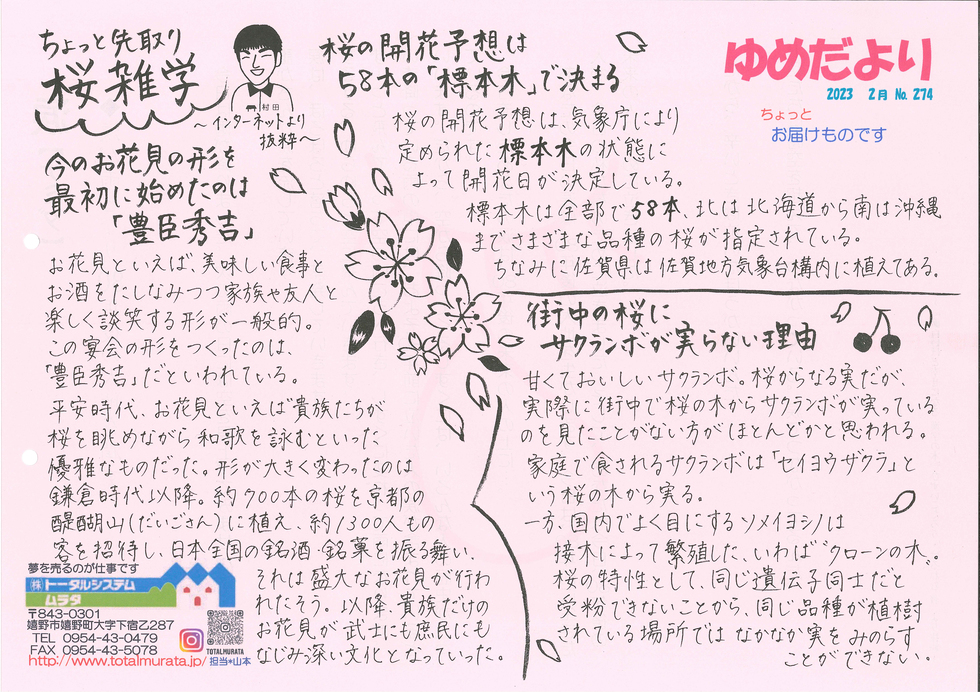 ちょっと先取り
桜雑学
村田
～インターネットより
抜粋～
今のお花見の形を
最初に始めたのは
「豊臣秀吉」
お花見といえば、美味しい食事と
お酒をたしなみつつ家族や友人と
楽しく談笑する形が一般的。
この宴会の形をつくったのは、
「豊臣秀吉」だといわれている。
平安時代、お花見といえば貴族たちが
桜を眺めながら和歌を詠むといった
優雅なものだった。形が大きく変わったのは
鎌倉時代以降。約700本の桜を京都の
醍醐山(だいごさん)に植え、約1300人もの
客を招待し、日本全国の銘酒・銘菓を振る舞い、
それは盛大なお花見が行わ
れたそう。以降、貴族だけの
お花見が武士にも庶民にも
なじみ深い文化となっていった。
桜の開花予想は
58本の「標本木」で決まる
桜の開花予想は、気象庁により
定められた標本木の状態に
よって開花日が決定している。
標本木は全部で58本、北は北海道から南は沖縄
までさまざまな品種の桜が指定されている。
ちなみに佐賀県は佐賀地方気象台構内に植えてある。
ゆめだより
2023 2月 No. 274
ちょっと
お届けものです
街中の桜に
サクランボが実らない理由
甘くておいしいサクランボ。桜からなる実だが、
実際に街中で桜の木からサクランボが実っている
のを見たことがない方がほとんどかと思われる。
家庭で食されるサクランボは「セイヨウザクラ」と
いう桜の木から実る。
一方、国内でよく目にするソメイヨシノは
接木によって繁殖した、いわば"クローンの木"。
桜の特性として、同じ遺伝子同士だと
受粉できないことから、同じ品種が植樹
されている場所ではなかなか実をみのらす
ことができない。
夢を売るのが仕事です
㈱トータルシステム
ムラタ
〒843-0301
嬉野市嬉野町大字下宿乙287
TEL 0954-43-0479
FAX 0954-43-5078
http://www.totalmurata.jp/
TOTALMURATA
担当*山本